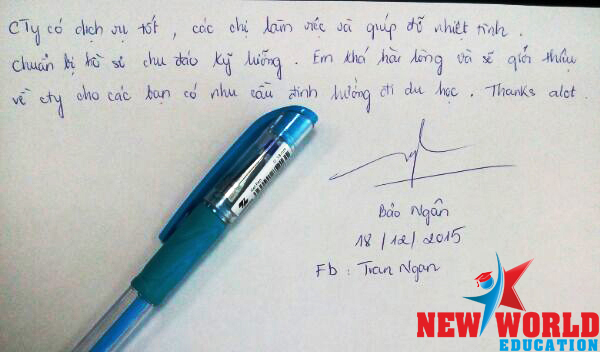 CTy có dịch vụ tốt, các chị làm việc và giúp đỡ nhiệt tình.
Chuẩn bị hồ sơ chu đáo kỹ lưỡng. Em khá hài lòng và sẽ giới thiệu
về cty cho các bạn có nhu cầu định hướng đi du học. Thanks alot.
Bảo Ngân
18/12/2015
Fb: Tran Ngan
NEW WORLD
EDUCATION